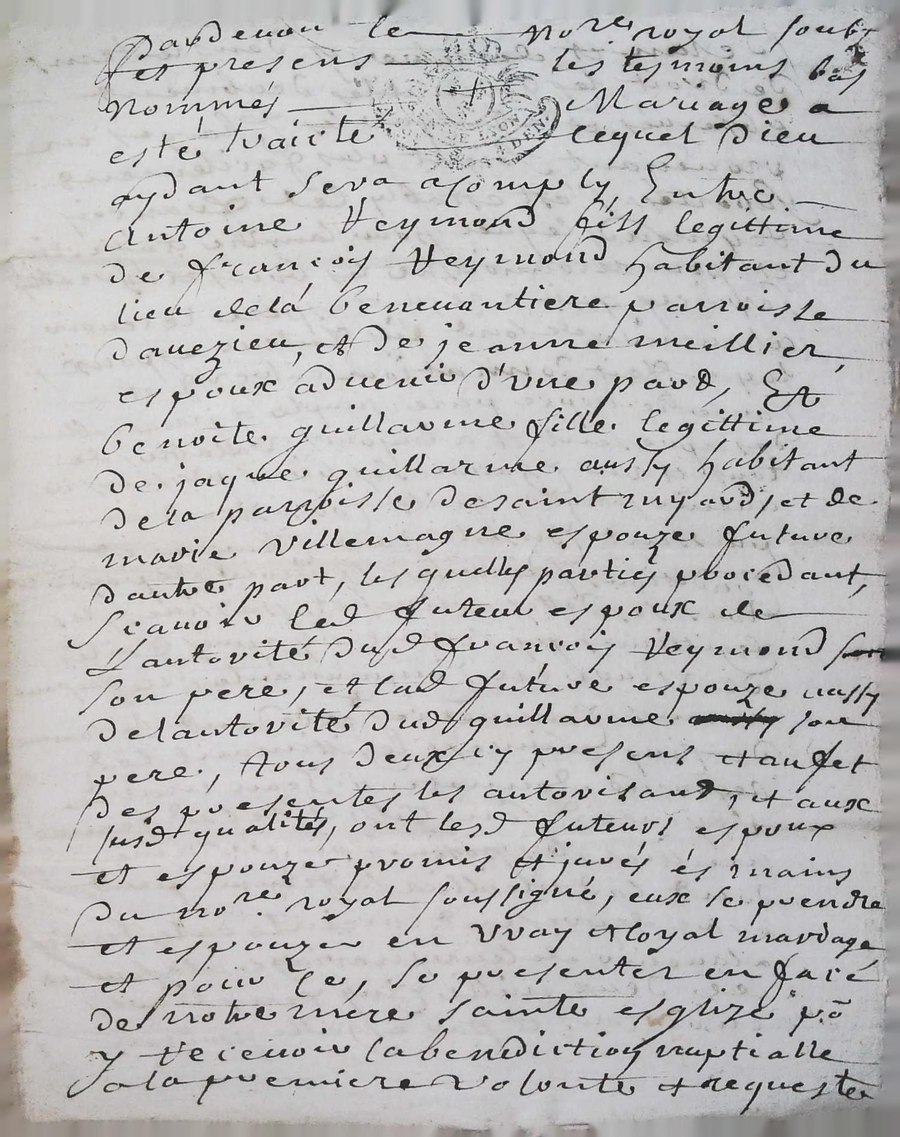 Pardevan le no.re royal soubs
et presens les tesmoins bas
nommés Mariage a
esté traicté lequel Dieu
aydant sera acomply, Entre
Antoine Veymond fils legittime
de françois Veymond habitant du
lieu dela benevantiere parroisse
davezieu, et de jeanne meillier
espoux advenir d'une part, Et
benoite guillarme fille legittime
de jaque guillarme aussy habitant
dela parroisse de saint et de
marie Villemagne espouze future
dautre part, lesquelles parties procedant,
scavoir led futeur espoux de
L'autorité dud françois Veymond
son pere, et lad future espouze aussy
de lautorité dud guillarme son
pere, tous deux cy presens et au fet
des presentes les autorisant, et aux
susd qualités, ont lesd futeurs espoux
et espouze promis et jurés és mains
du no.re royal soussigné, eux se prendre
et espouzer en vray et loyal mardage
et pour ce, se presenter en face
de notre mere sainte esglize po
y recevoir la bendiction nuptialle
a la premiere volonte et requeste